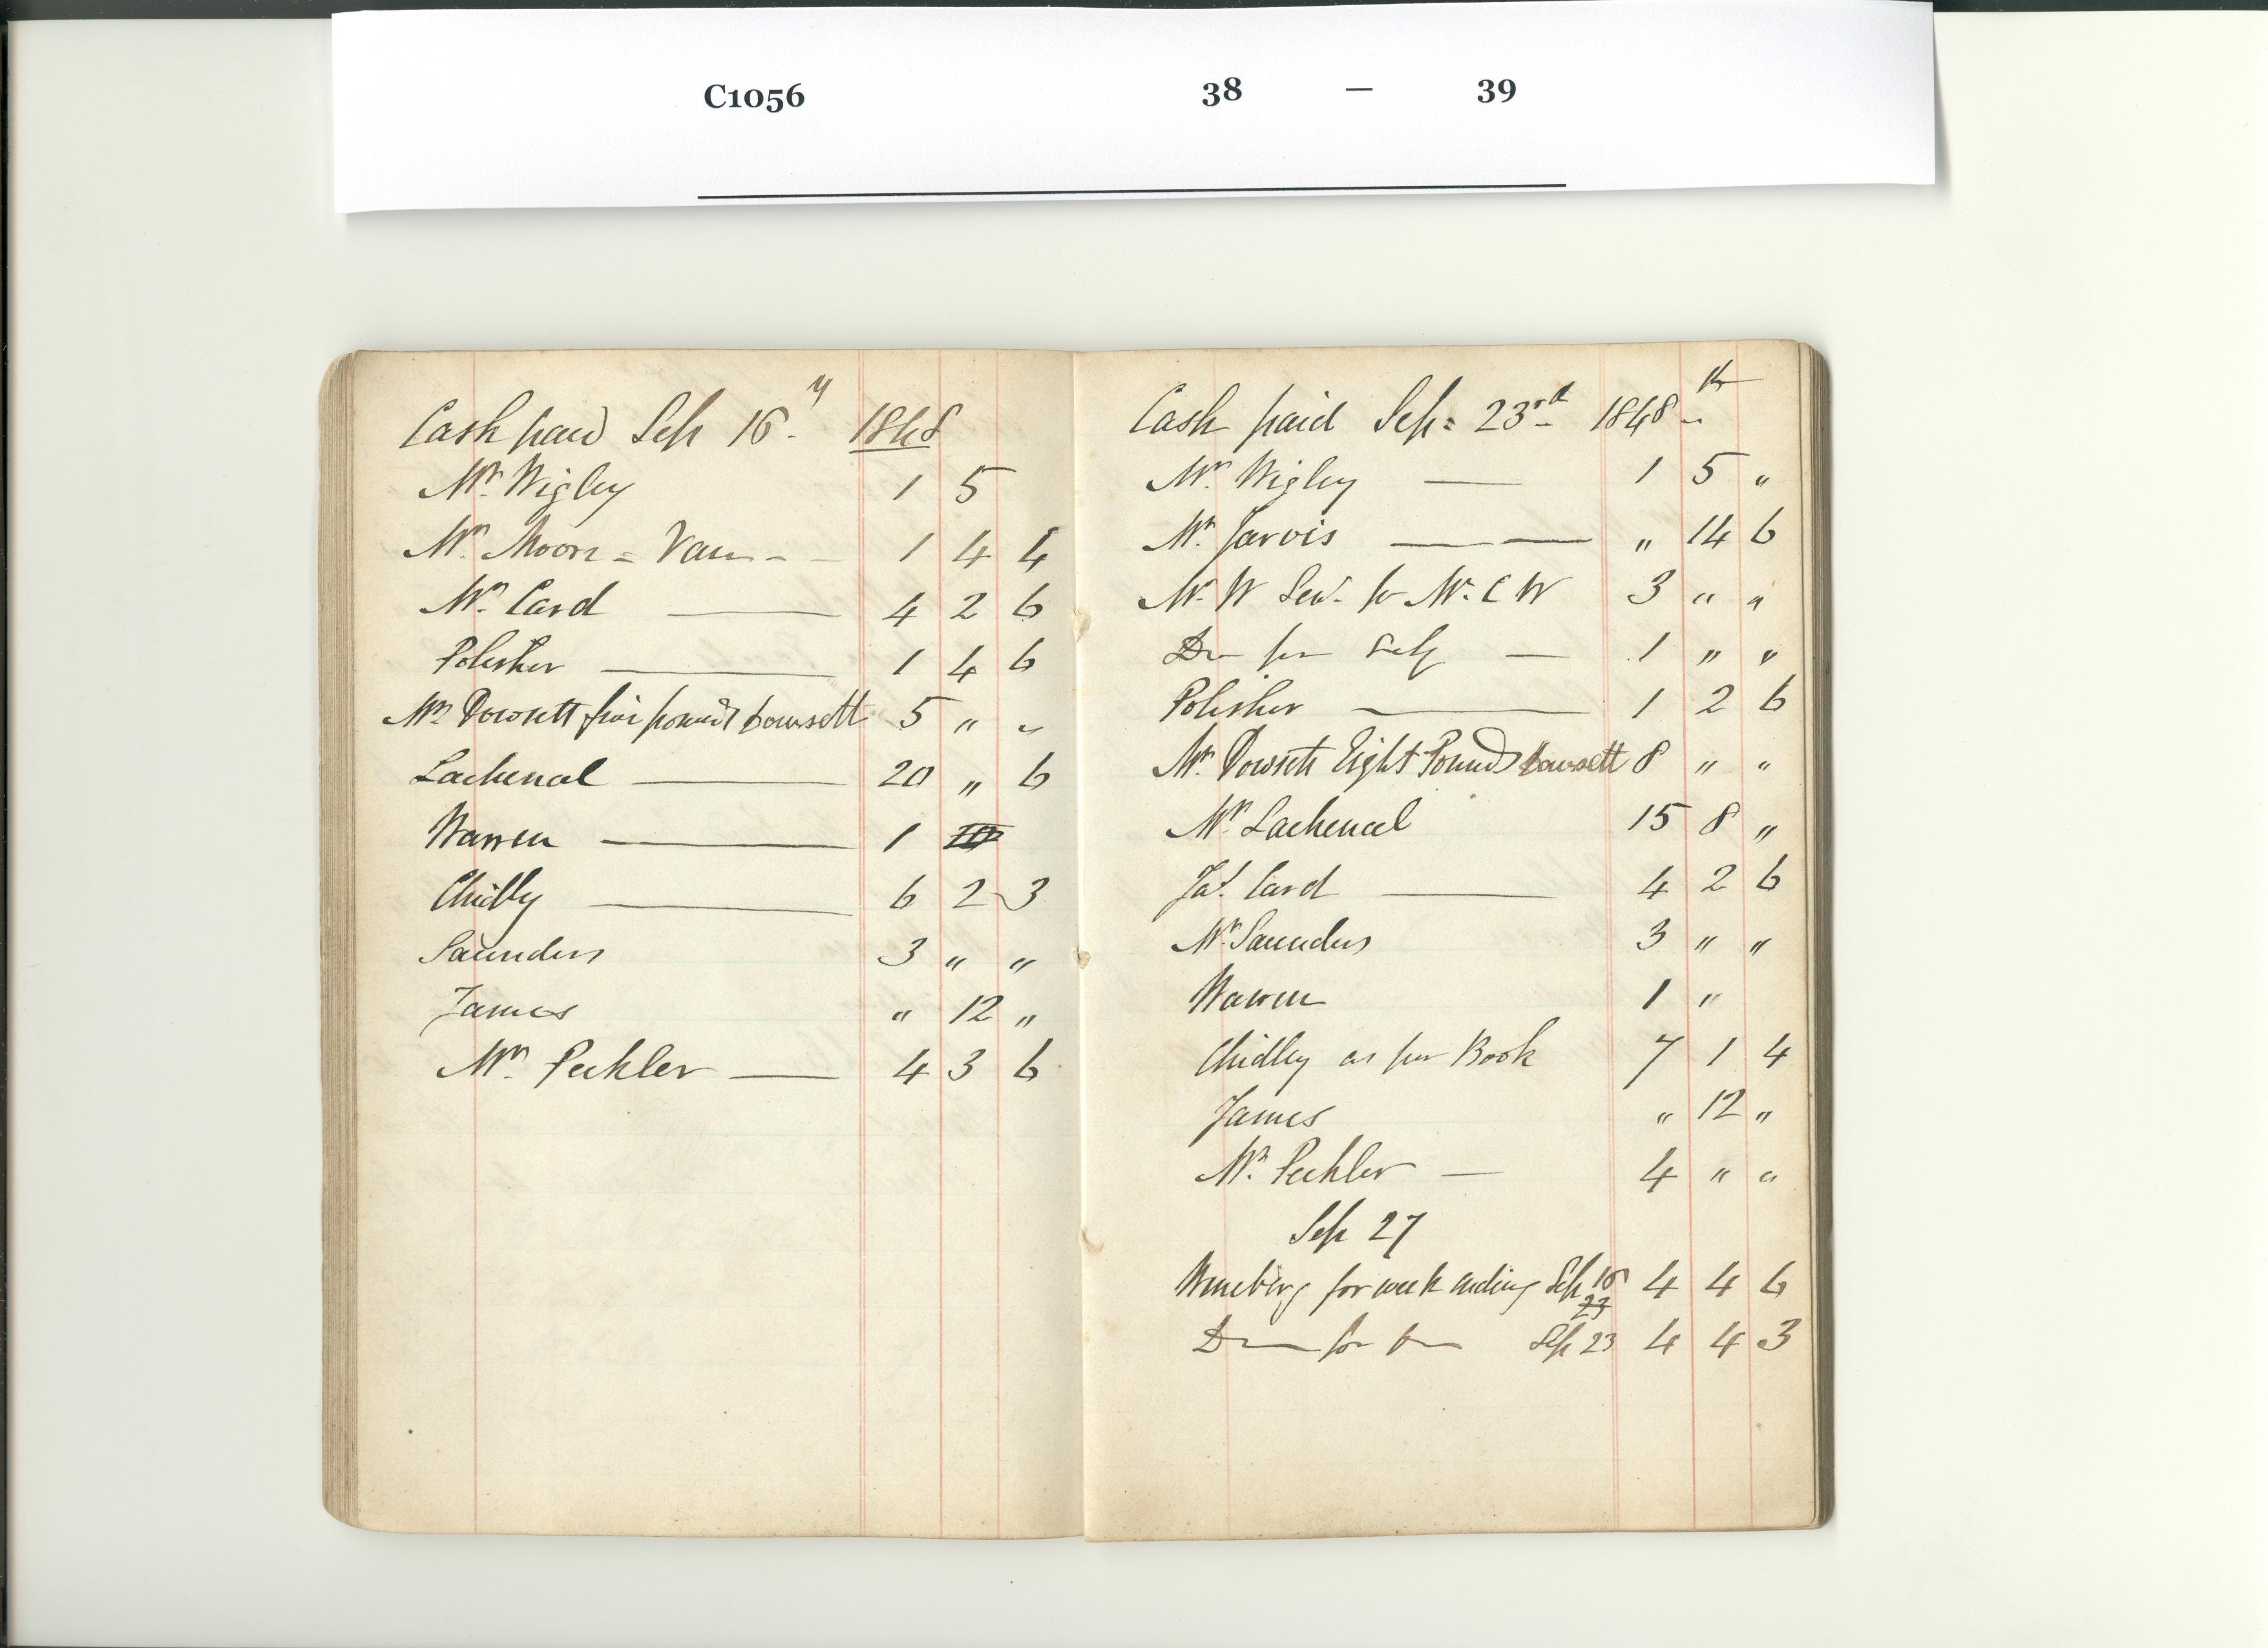 C1056 38 — 39
Cash paid Sep 16. 1848
Mr. Wigley 1 5
Mr. Moore = - 1 4 4
Mr. Card — 4 2 6
Polisher — 1 4 6
Mr Dowsett five pounds Dowsett 5 " "
Lachenal — 20 " 6
Warren — 1
Chidley — 6 2 3
Saunders 3 " "
James " 12 "
Mr. Peckler — 4 3 6
Cash paid Sep = 23rd 1848
Mr. Wigley — 1 5 "
Mr. Jarvis — — " 14 6
Mr. W Senr. for Mr. C W 3 " "
Do for Self — 1 " "
Polisher — 1 2 6
Mr. Dowsett Eight Pounds Dowsett 8 " "
Mr. Lachenal 15 8 "
Jas. Card — 4 2 6
Mr. Saunders 3 " "
Warren 1 "
Chidley as per Book 7 1 4
James " 12 "
Mr. Peckler — 4 " "
Sep 27
for week ending Sep 16 4 4 6
23
Do for Do Sep 23 4 4 3